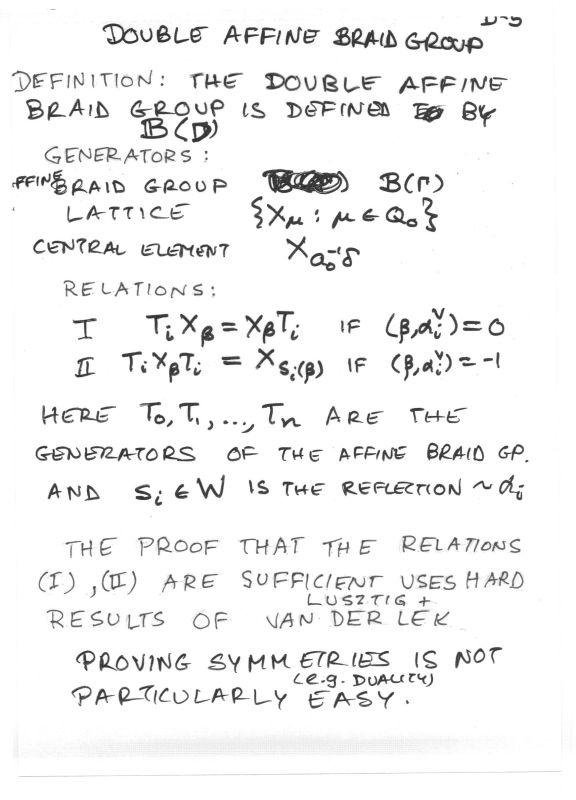 D-5
DOUBLE AFFINE BRAID GROUP
DEFINITION: THE DOUBLE AFFINE
BRAID GROUP IS DEFINED BY
B(D)
GENERATORS:
FFINE BRAID GROUP B(Γ)
LATTICE {X_μ : μ ∈ Q_0}
CENTRAL ELEMENT X_{a_0^{-1}δ}
RELATIONS:
I T_i X_β = X_β T_i IF (β, α_i^∨) = 0
II T_i X_β T_i = X_{s_i(β)} IF (β, α_i^∨) = -1
HERE T_0, T_1, ..., T_n ARE THE
GENERATORS OF THE AFFINE BRAID GP.
AND s_i ∈ W IS THE REFLECTION ~ α_i
THE PROOF THAT THE RELATIONS
(I), (II) ARE SUFFICIENT USES HARD
LUSZTIG +
RESULTS OF VAN DER LEK
PROVING SYMMETRIES IS NOT
(e.g. DUALITY)
PARTICULARLY EASY.